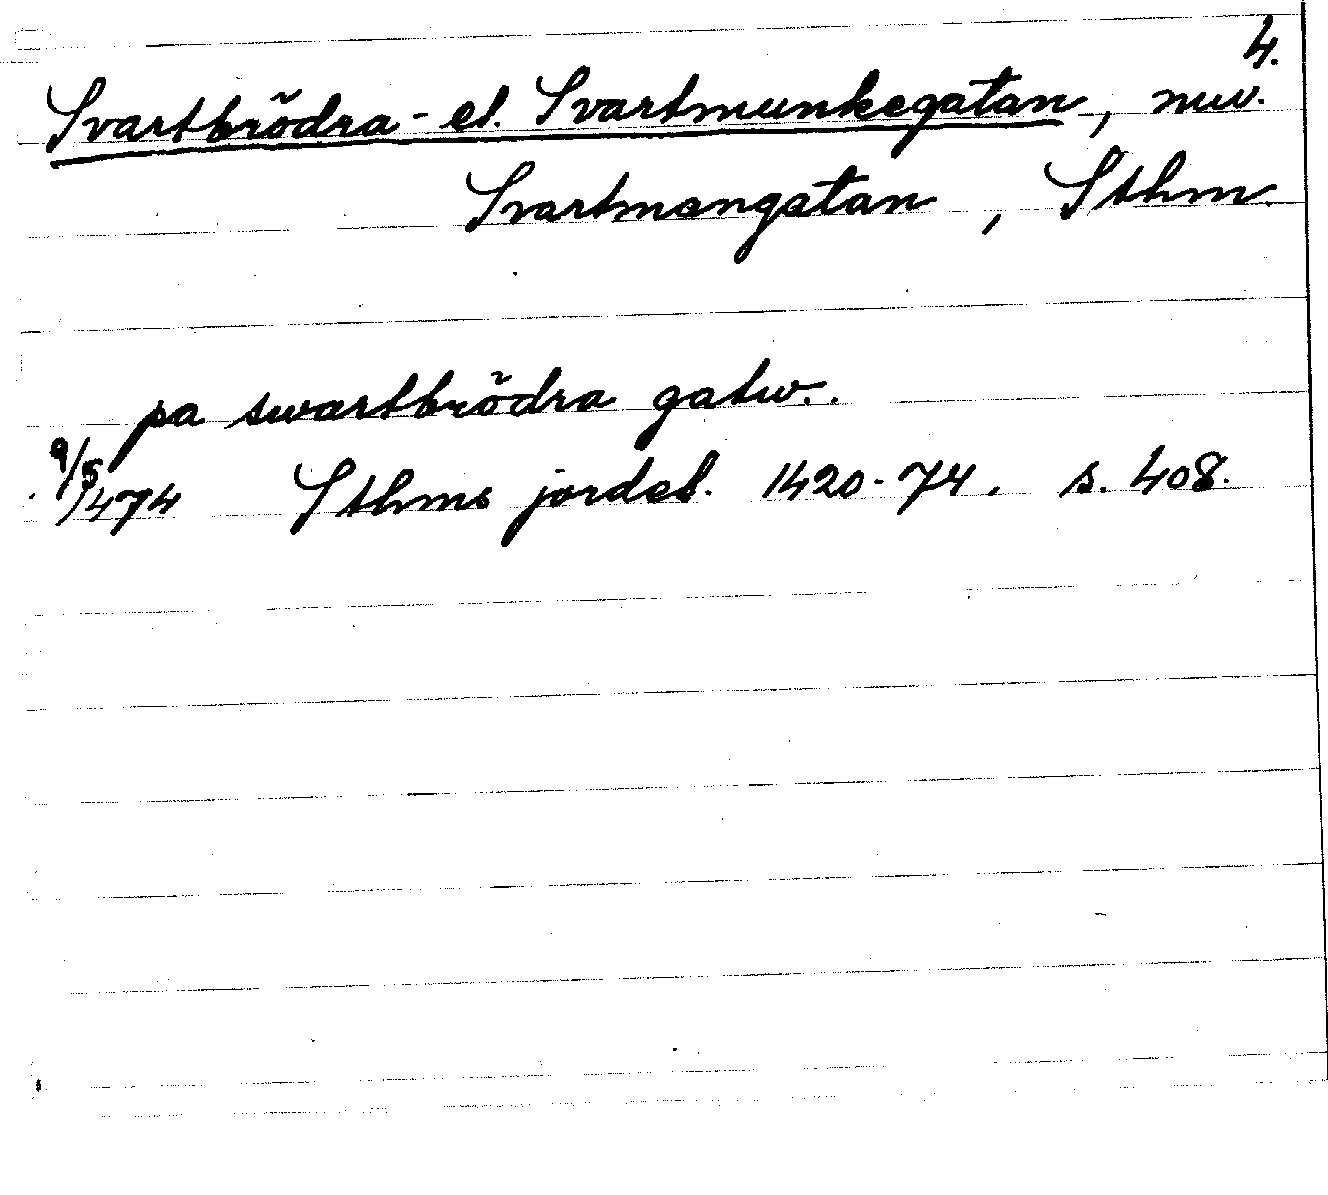 4.
Svartbrödra- el. Svartmunkegatan, nuv.
Svartmangatan, Sthm.
pa swartbrödra gatw..
9/5 1474 Sthms jordeb. 1420-74. s. 408.